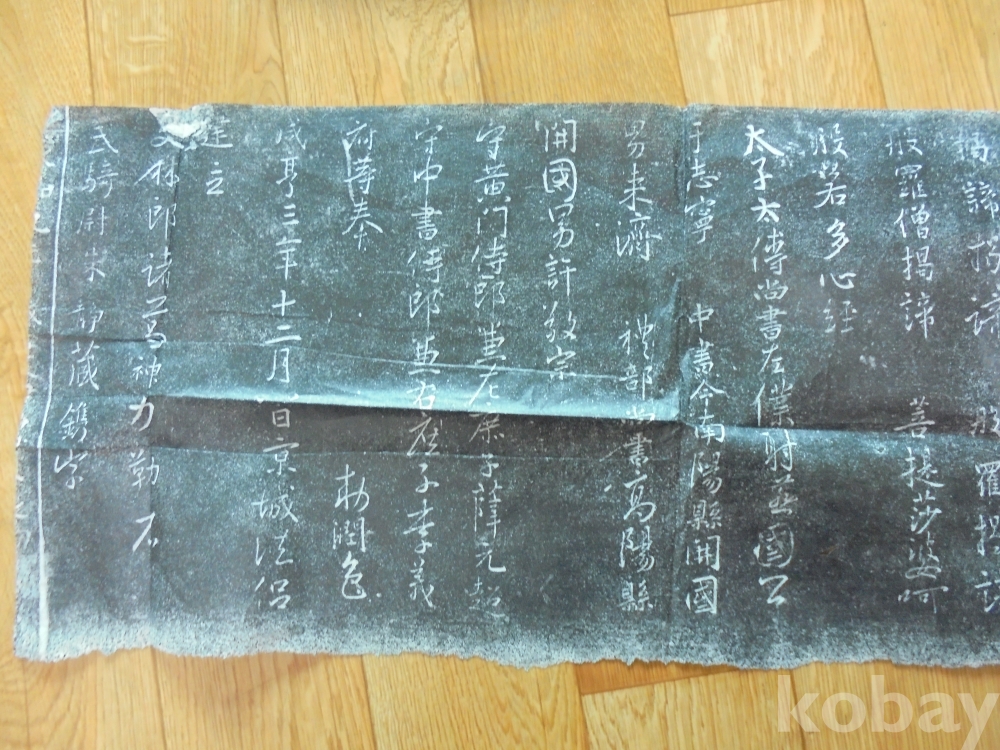 揭諦揭諦　般羅揭諦
般羅僧揭諦　菩提莎婆呵
般若多心經
太子太傅尚書左僕射燕國公
于志寧　中書令南陽縣開國
男來濟　禮部尚書高陽縣
開國男許敬宗
守黃門侍郎兼左庶子薛元超
守中書侍郎兼右庶子李義
府等奉　勑潤色
咸亨三年十二月八日京城法侶
建立
文林郎諸葛神力勒石
武騎尉朱靜藏鐫字
kobay